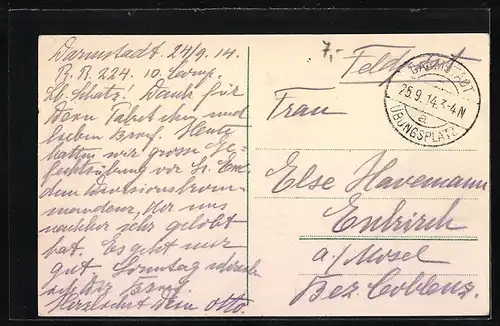 Darmstadt. 24/9. 14.
R. R. 224. 10. Comp.
Lb. Schatz! Dank für
Dein Paket chen und
lieben Brief. Heute
hatten wir grosse Ge-
fechtsübung vor Sr. Exz.
dem Divisionskom-
mandeur, der uns
nachher sehr gelobt
hat. Es geht mir
gut. Sonntag schreibe
ich dir Brief.
Herzlichst dein Otto.
7,-
Feldpost
DARMSTADT
25.9.14.3-4N
a
ÜBUNGSPLATZ
Frau
Else Havemann
Enkirch
a./Mosel
Bez. Coblenz.